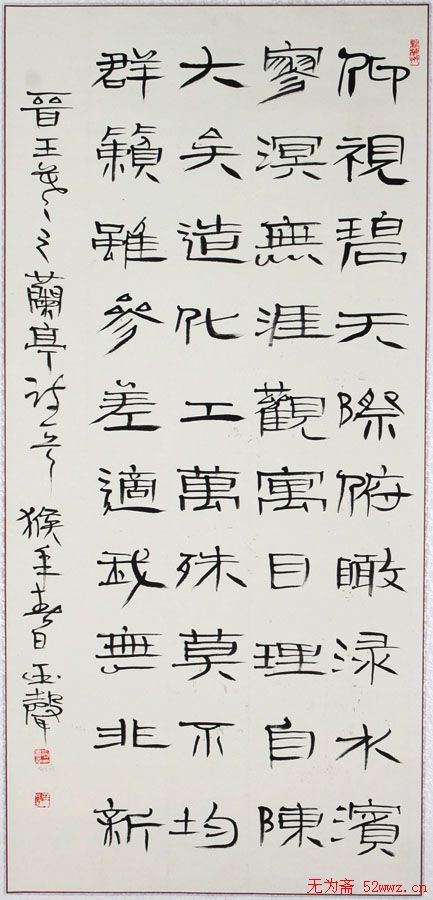 仰視碧天際俯瞰渌水濱
寥溟無涯觀寓目理自陳
大矣造化工萬殊莫不均
群籟雖參差適我無非新
晉王羲之蘭亭詩一首 猴年春日聲
无为斋 52wwz.cn